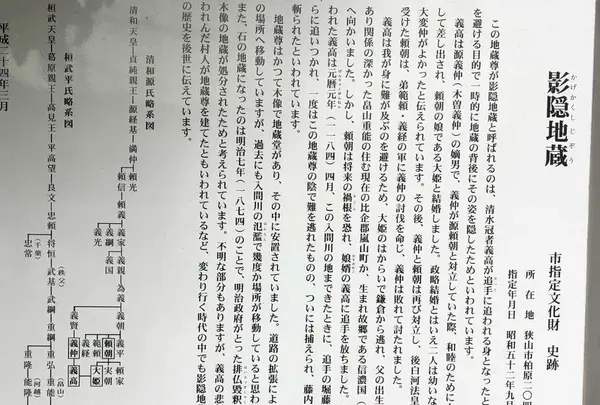 影隠地蔵
かげかくしじぞう
市指定文化財　史跡
所在地　狭山市柏原二〇四
指定年月日　昭和五十二年九月
この地蔵尊が影隠地蔵と呼ばれるのは、清水冠者義高が追手に追われる身となったと
を避ける目的で一時的に地蔵の背後にその姿を隠したためといわれています。
義高は源義仲（木曽義仲）の嫡男で、義仲が源頼朝と対立していた際、和睦のために
して差し出され、頼朝の娘である大姫と結婚しました。政略結婚とはいえ二人は幼いな
大変仲がよかったと伝えられています。その後、義仲と頼朝は再び対立し、後白河法皇
受けた頼朝は、弟範頼・義経の軍に義仲の討伐を命じ、義仲は敗れて討たれました。
義高は我が身に難が及ぶのを避けるため、大姫のはからいで鎌倉から逃れ、父の出生
あり関係の深かった畠山重能の住む現在の比企郡嵐山町か、生まれ故郷である信濃国（
へ向かいました。しかし、頼朝は将来の禍根を恐れ、娘婿の義高に追手を放ちました。
られた義高は元暦元年（一一八四）四月、この入間川の地まできたときに、追手の堀藤
らに追いつかれ、一度はこの地蔵尊の陰で難を逃れたものの、ついには捕えられ、藤内
斬られたといわれています。
地蔵尊はかつて木像で地蔵堂があり、その中に安置されていました。道路の拡張によ
の場所へ移動していますが、過去にも入間川の氾濫で幾度か場所が移動していると思わ
また、石の地蔵になったのは明治七年（一八七四）のことで、明治政府がとった排仏毀釈
木像の地蔵が処分されたためと考えられています。不明な部分もありますが、義高の悲
われんだ村人が地蔵尊を建てたともいわれているなど、変わり行く時代の中でも影隠地
の歴史を後世に伝えています。
清和源氏略系図
清和天皇―貞純親王―源経基―満仲―頼光
頼信―頼義―義家―義親―為義―義朝―義平
義綱
義光
義国
頼朝
頼家
実朝
大姫
範頼
義経
義賢―義仲―義高
桓武平氏略系図
桓武天皇―葛原親王―高見王―平高望―良文―忠頼―将恒―武基―武綱―重綱
（秩父）
忠常
（千葉）
重弘―重能
（畠山）
重隆―能隆
（河越）
平成二十四年三月